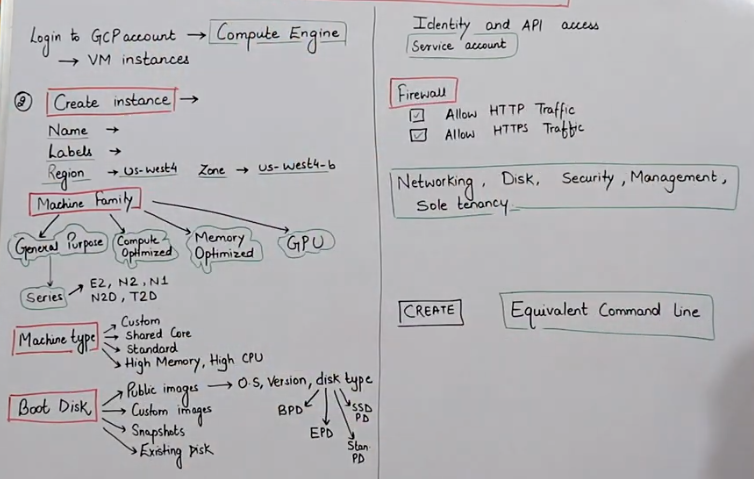 Login to GCP account → Compute Engine
→ VM instances
② Create instance →
Name →
Labels →
Region → us-west4 Zone → us-west4-b
Machine Family
General Purpose
Compute Optimized
Memory Optimized
GPU
Series → E2, N2, N1
N2D, T2D
Machine type
Custom
Shared Core
Standard
High Memory, High CPU
Boot Disk
Public images → O.S, Version, disk type
Custom images
Snapshots
Existing Disk
BPD
EPD
Stan. PD
SSD PD
Identity and API access
Service account
Firewall
Allow HTTP Traffic
Allow HTTPS Traffic
Networking, Disk, Security, Management,
Sole tenancy
CREATE
Equivalent Command Line